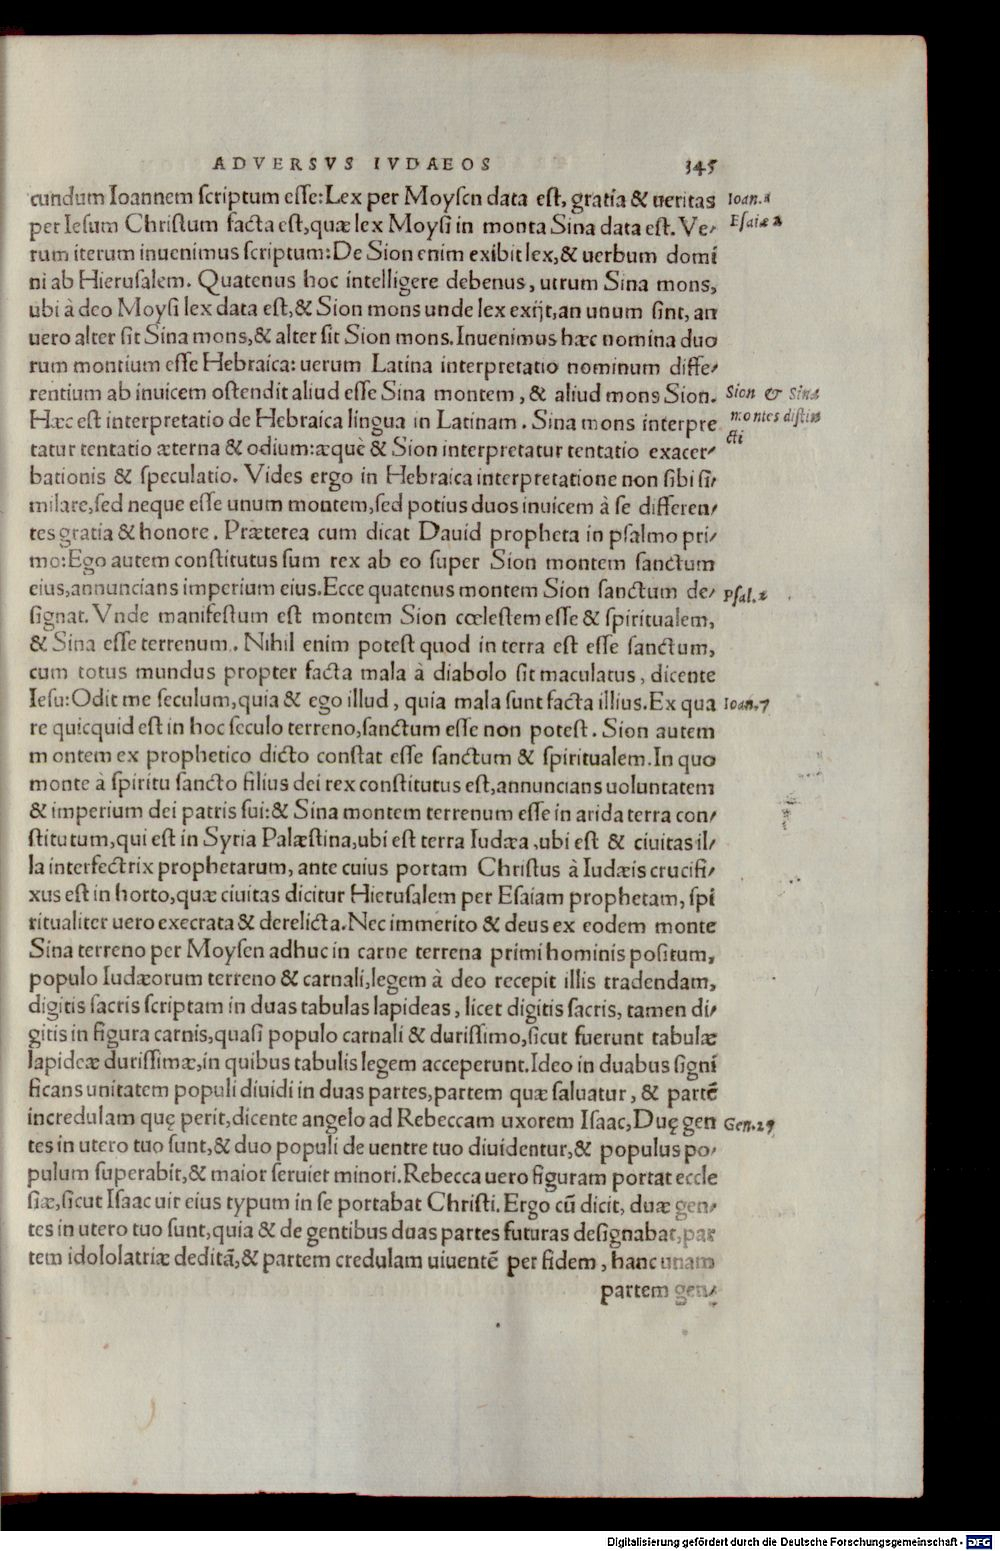 ADVERSVS IVDAEOS 345
cundum Ioannem scriptum esse: Lex per Moysen data est, gratia & ueritas Ioan.1
per Iesum Christum facta est, quæ lex Moysi in monta Sina data est. Ve- Esaiæ 2
rum iterum inuenimus scriptum: De Sion enim exibit lex, & uerbum domi
ni ab Hierusalem. Quatenus hoc intelligere debenus, utrum Sina mons,
ubi à deo Moysi lex data est, & Sion mons unde lex exijt, an unum sint, an
uero alter sit Sina mons, & alter sit Sion mons. Inuenimus hæc nomina duo
rum montium esse Hebraica: uerum Latina interpretatio nominum diffe-
rentium ab inuicem ostendit aliud esse Sina montem, & aliud mons Sion. Sion & Sina
Hæc est interpretatio de Hebraica lingua in Latinam. Sina mons interpre montes distin
tatur tentatio æterna & odium: æquè & Sion interpretatur tentatio exacer- cti
bationis & speculatio. Vides ergo in Hebraica interpretatione non sibi si-
milare, sed neque esse unum montem, sed potius duos inuicem à se differen-
tes gratia & honore. Præterea cum dicat Dauid propheta in psalmo pri-
mo: Ego autem constitutus sum rex ab eo super Sion montem sanctum
eius, annuncians imperium eius. Ecce quatenus montem Sion sanctum de- Psal.2
signat. Vnde manifestum est montem Sion cœlestem esse & spiritualem,
& Sina esse terrenum. Nihil enim potest quod in terra est esse sanctum,
cum totus mundus propter facta mala à diabolo sit maculatus, dicente
Iesu: Odit me seculum, quia & ego illud, quia mala sunt facta illius. Ex qua Ioan.7
re quicquid est in hoc seculo terreno, sanctum esse non potest. Sion autem
montem ex prophetico dicto constat esse sanctum & spiritualem. In quo
monte à spiritu sancto filius dei rex constitutus est, annuncians uoluntatem
& imperium dei patris sui: & Sina montem terrenum esse in arida terra con-
stitutum, qui est in Syria Palæstina, ubi est terra Iudæa, ubi est & ciuitas il-
la interfectrix prophetarum, ante cuius portam Christus à Iudæis crucifi-
xus est in horto, quæ ciuitas dicitur Hierusalem per Esaiam prophetam, spi
ritualiter uero execrata & derelicta. Nec immerito & deus ex eodem monte
Sina terreno per Moysen adhuc in carne terrena primi hominis positum,
populo Iudæorum terreno & carnali, legem à deo recepit illis tradendam,
digitis sacris scriptam in duas tabulas lapideas, licet digitis sacris, tamen di-
gitis in figura carnis, quasi populo carnali & durissimo, sicut fuerunt tabulæ
lapideæ durissimæ, in quibus tabulis legem acceperunt. Ideo in duabus signi
ficans unitatem populi diuidi in duas partes, partem quæ saluatur, & partẽ
incredulam quę perit, dicente angelo ad Rebeccam uxorem Isaac, Duę gen Gen.25
tes in utero tuo sunt, & duo populi de uentre tuo diuidentur, & populus po-
pulum superabit, & maior seruiet minori. Rebecca uero figuram portat eccle
siæ, sicut Isaac uir eius typum in se portabat Christi. Ergo cũ dicit, duæ gen-
tes in utero tuo sunt, quia & de gentibus duas partes futuras designabat, par
tem idololatriæ deditã, & partem credulam uiuentẽ per fidem, hanc unam
partem gen-
Digitalisierung gefördert durch die Deutsche Forschungsgemeinschaft - DFG